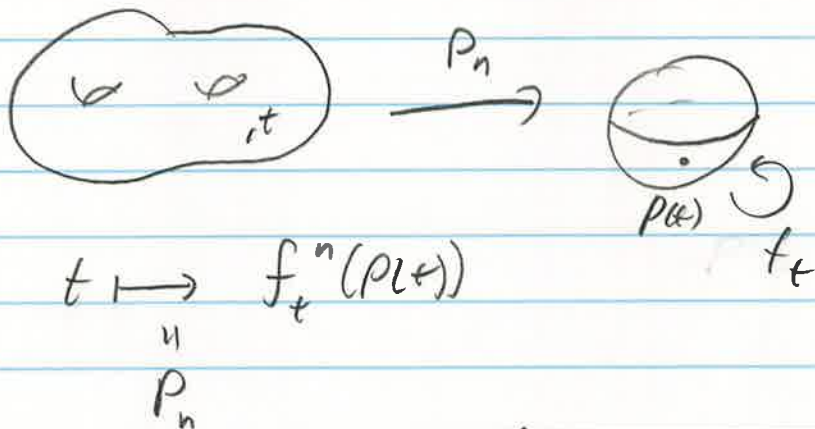 P_n
t
p(t)
f_t
t ↦ f_t^n(p(t))
॥
P_n